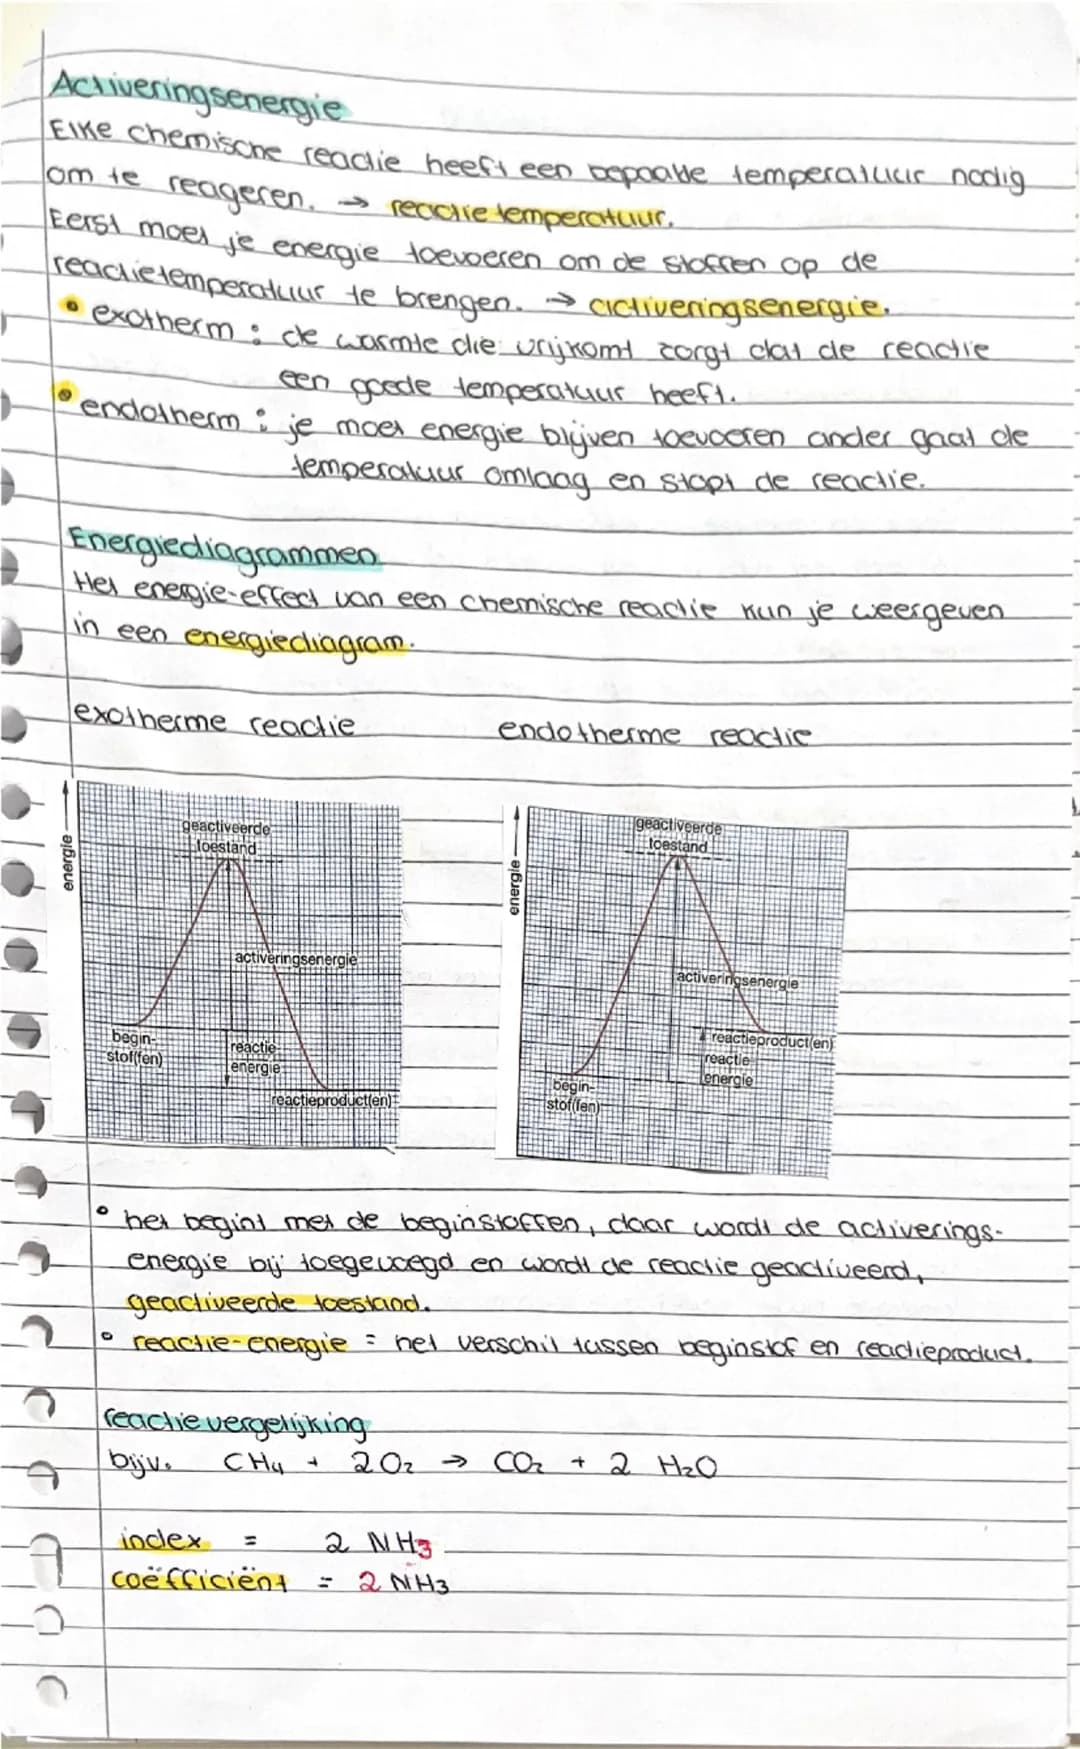 Activeringsenergie
Elke chemische reactie heeft een bepaalde temperatuur nodig
om te reageren. → reactietemperatuur.
Eerst moet je energie toevoeren om de stoffen op de
reactietemperatuur te brengen. → activeringsenergie.
• exotherm : de warmte die vrijkomt zorgt dat de reactie
een goede temperatuur heeft.
• endotherm : je moet energie blijven toevoeren ander gaat de
temperatuur omlaag en stopt de reactie.
Energiediagrammen
Het energie-effect van een chemische reactie kun je weergeven
in een energiediagram.
exotherme reactie
endotherme reactie
energie
geactiveerde
toestand
activeringsenergie
begin-
stof(fen)
reactie
energie
reactieproduct(en)
energie
geactiveerde
toestand
activeringsenergie
reactieproduct(en)
reactie
energie
begin-
stof(fen)
• het begint met de beginstoffen, daar wordt de activerings-
energie bij toegevoegd en wordt de reactie geactiveerd,
geactiveerde toestand.
• reactie-energie = het verschil tussen beginstof en reactieproduct.
reactievergelijking
bijv. CH₄ + 2O₂ → CO₂ + 2 H₂O
index = 2 NH3
coëfficiënt = 2 NH3